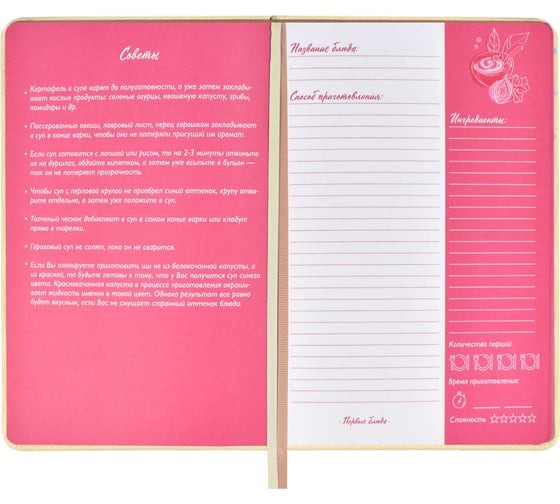 Советы
• Картофель в супе варят до полуготовности, а уже затем заклады-
вают кислые продукты: соленые огурцы, квашеную капусту, грибы,
помидоры и др.
• Пассерованные овощи, лавровый лист, перец горошком закладывают
в суп в конце варки, чтобы они не потеряли присущий им аромат.
• Если суп готовится с лапшой или рисом, то на 2-3 минуты откиньте
их на дуршлаг, обдайте кипятком, а затем уже всыпьте в бульон —
так он не потеряет прозрачность.
• Чтобы суп с перловой крупой не приобрел синий оттенок, крупу отва-
рите отдельно, а затем уже положите в суп.
• Толченый чеснок добавляют в суп в самом конце варки или кладут
прямо в тарелки.
• Гороховый суп не солят, пока он не сварится.
• Если Вы планируете приготовить щи не из белокочанной капусты, а
из красной, то будьте готовы к тому, что у Вас получится суп синего
цвета. Краснокочанная капуста в процессе приготовления окраши-
вает жидкость именно в такой цвет. Однако результат все равно
будет вкусным, если Вас не смущает странный оттенок блюда.
Название блюда:
Способ приготовления:
- Первые блюда -
Ингредиенты:
Количество порций:
Время приготовления:
Сложность